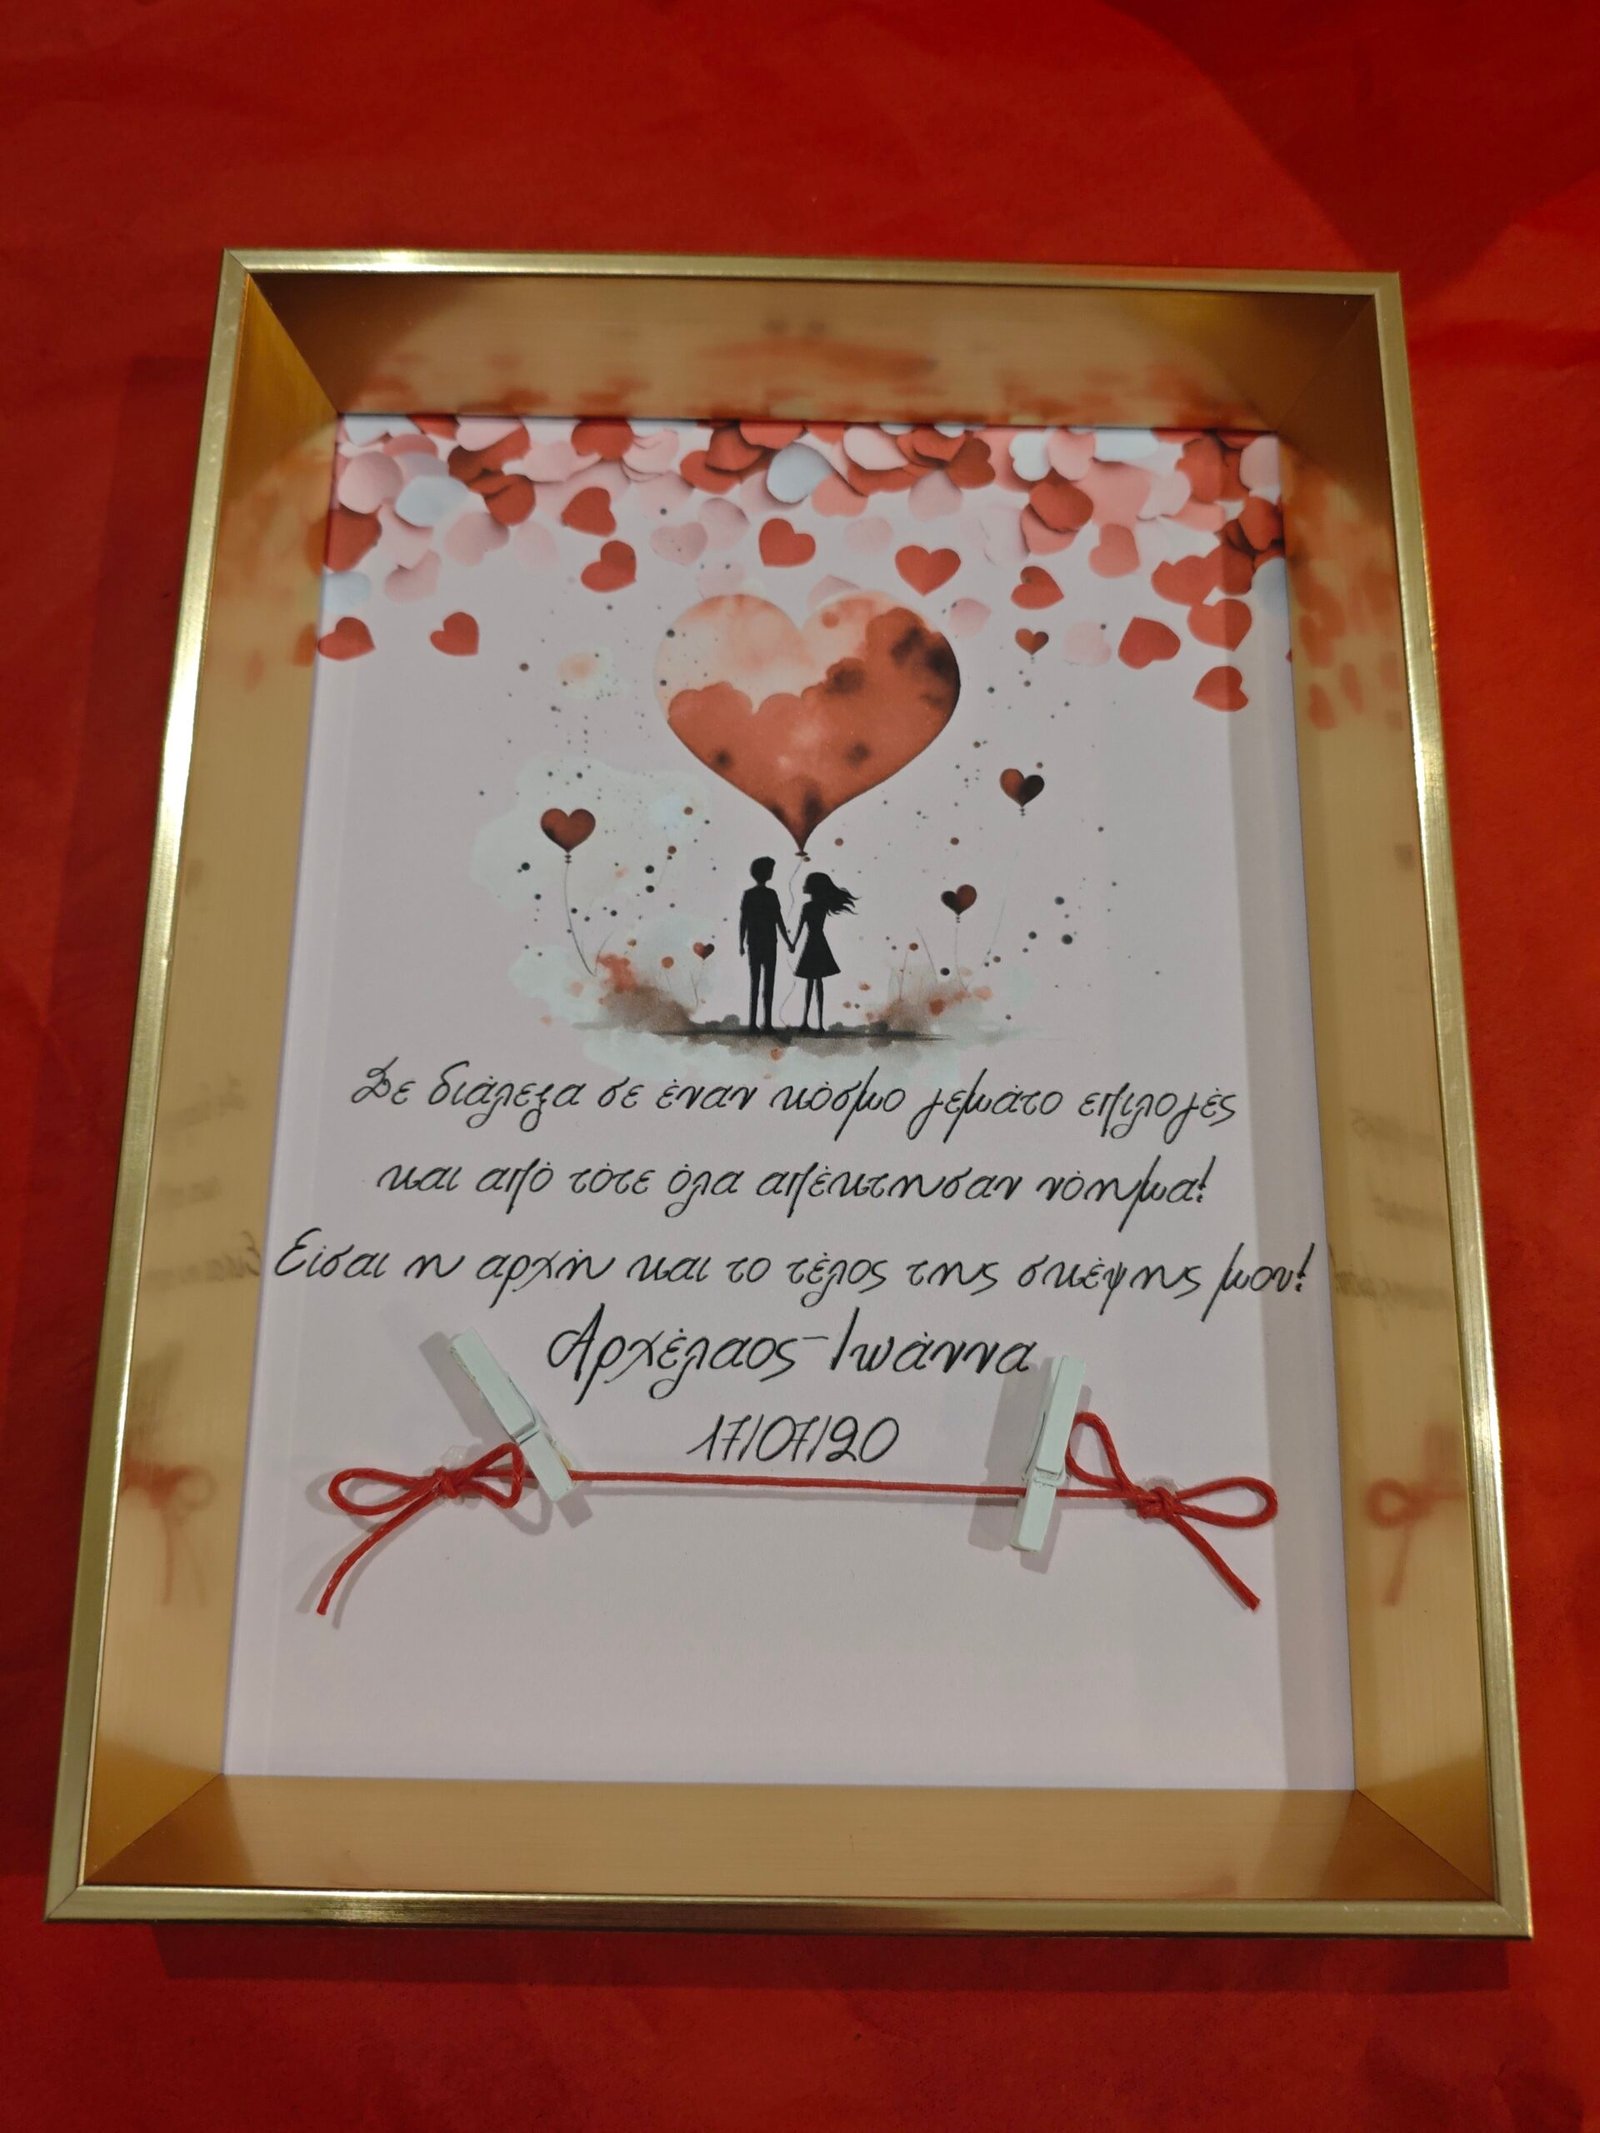 Σε διάλεξα σε έναν κόσμο γεμάτο επιλογές
και από τότε όλα απέκτησαν νόημα!
Είσαι η αρχή και το τέλος της σκέψης μου!
Αρχέλαος-Ιωάννα
17/07/20